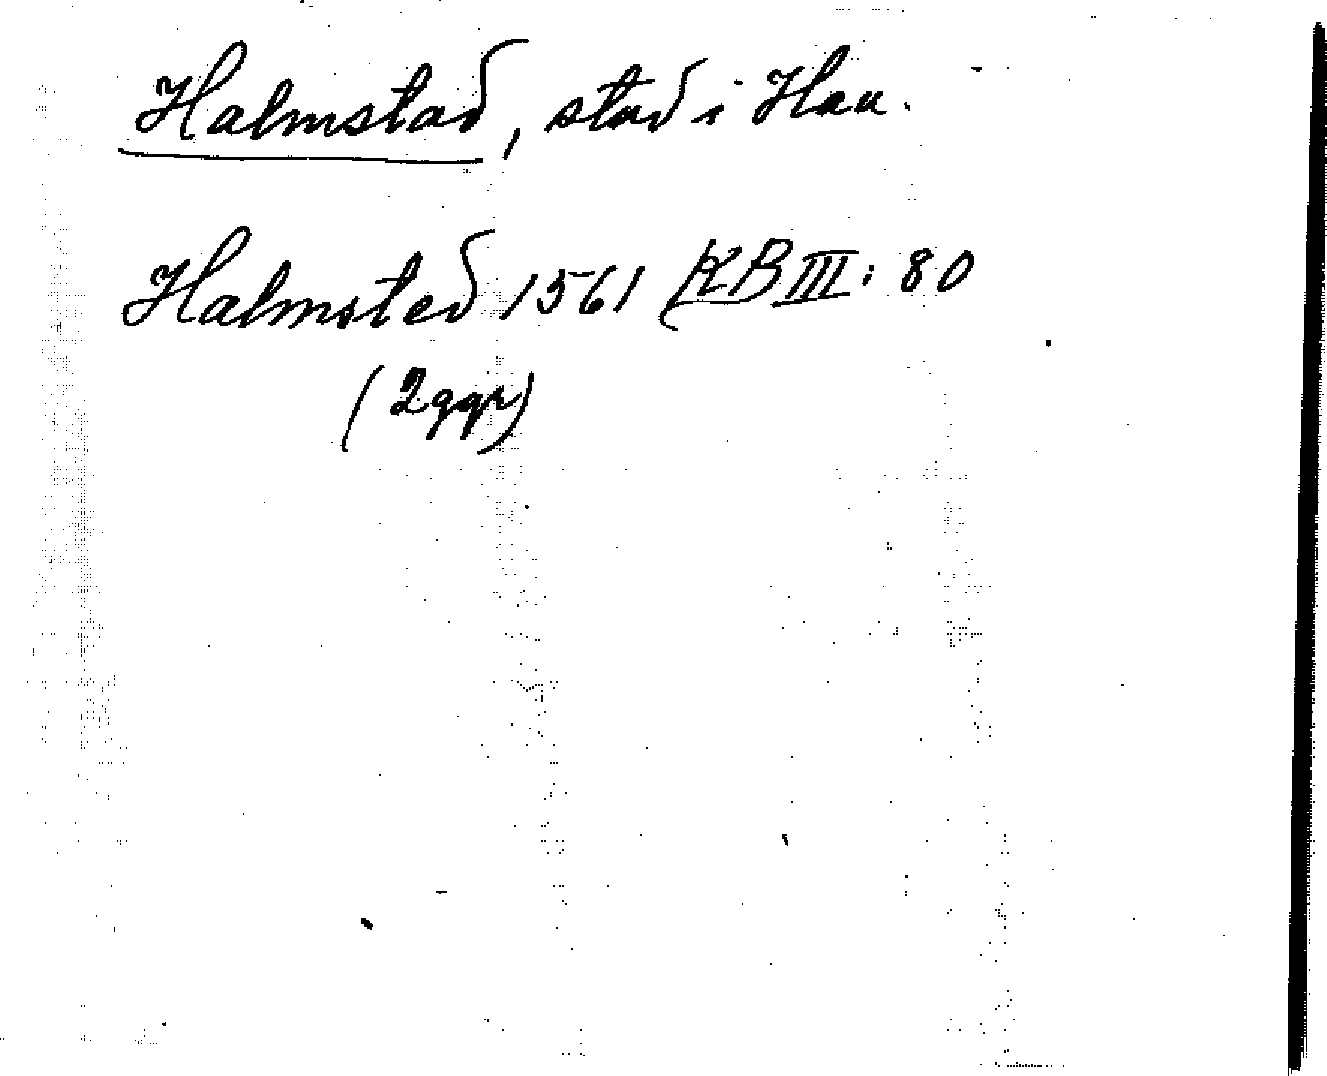 Halmstad, stad i Hall.
Halmsted 1561 KB III: 80
(2 ggr)